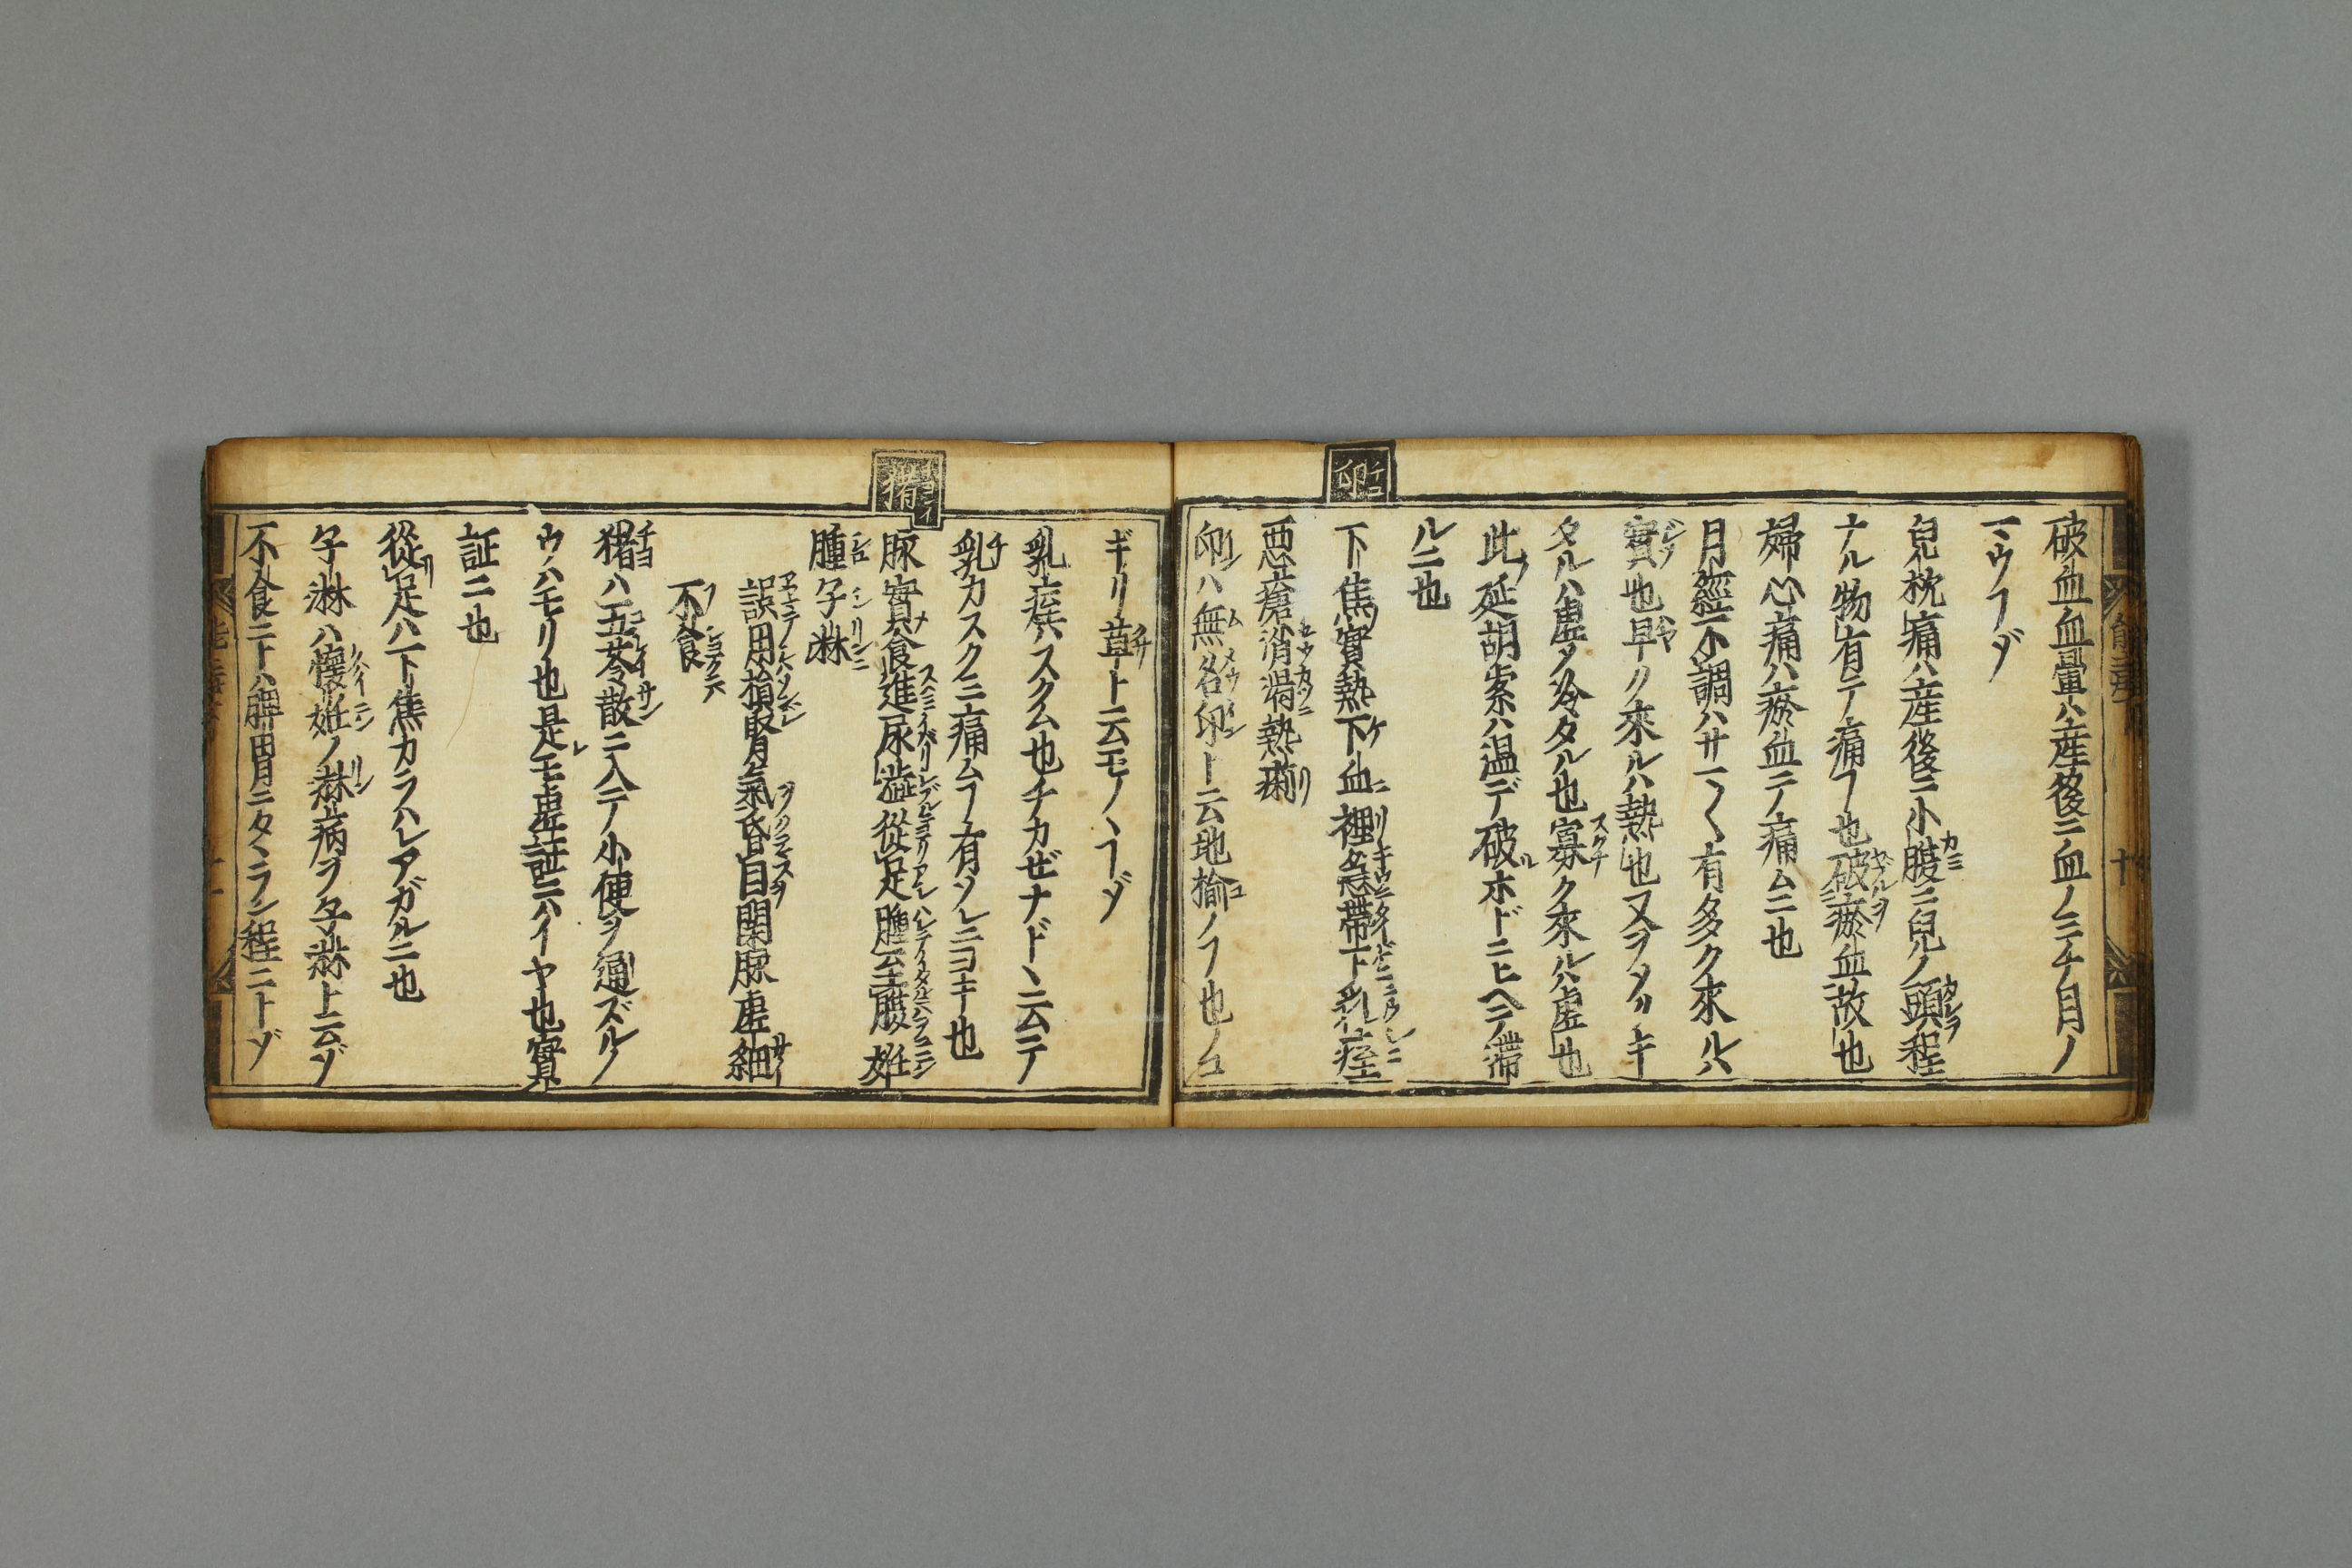 破血血暈ハ産後ニ血ノミチ目ノ
マウフゾ
兒枕痛ハ産後ニ小腹ニ兒ノ頭程
ナル物有テ痛フ也破瘀血故也
婦心痛ハ瘀血ニテ痛ムニ也
月經不調ハサマ〱有多ク來ルハ
實也早ク來ルハ熱也又ヲクレキ
タルハ虚ノ冷タル也寡ク來ルハ虚也
此延胡索ハ温デ破ホドニヒヘテ滯
ルニ也
下焦實熱下血裡急帶下乳痓
惡瘡消渇熱痢
卬ハ無名卬ト云地揄ノフ也ノコ
ギリ草ト云モノヽフゾ
乳痓ハスクム也チカゼナドヽ云テ
乳カスクミ痛ムフ有ソレニヨキ也
猪
脉實食進尿澁從足腫至腹妊
腫子淋
誤用損腎氣昏目閑脉虚細
不食
猪ハ五苓散ニ入テ小便ヲ通ズルノ
ウハモリ也是モ虚証ニハイヤ也實
証ニ也
從足ハ下焦カラハレアガルニ也
子淋ハ懷妊ノ淋病ヲ子淋ト云ゾ
不食ニトハ脾胃ニタヽラン程ニトゾ